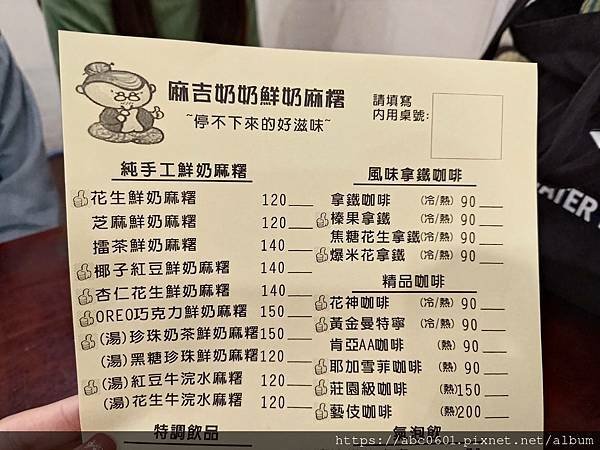 麻吉奶奶鮮奶麻糬
~停不下來的好滋味~
請填寫
內用桌號:
純手工鮮奶麻糬
花生鮮奶麻糬 120
芝麻鮮奶麻糬 120
擂茶鮮奶麻糬 140
椰子紅豆鮮奶麻糬 140
杏仁花生鮮奶麻糬 140
OREO巧克力鮮奶麻糬 150
(湯)珍珠奶茶鮮奶麻糬 150
(湯)黑糖珍珠鮮奶麻糬 120
(湯)紅豆牛浣水麻糬 120
(湯)花生牛浣水麻糬 120
特調飲品
風味拿鐵咖啡
拿鐵咖啡 (冷/熱) 90
榛果拿鐵 (冷/熱) 90
焦糖花生拿鐵 (冷/熱) 90
爆米花拿鐵 (冷/熱) 90
精品咖啡
花神咖啡 (冷/熱) 90
黃金曼特寧 (冷/熱) 90
肯亞AA咖啡 (熱) 90
耶加雪菲咖啡 (熱) 90
莊園級咖啡 (熱) 150
藝伎咖啡 (熱) 200
氣泡飲
ATER
https://abc0601.pixnet.net/album